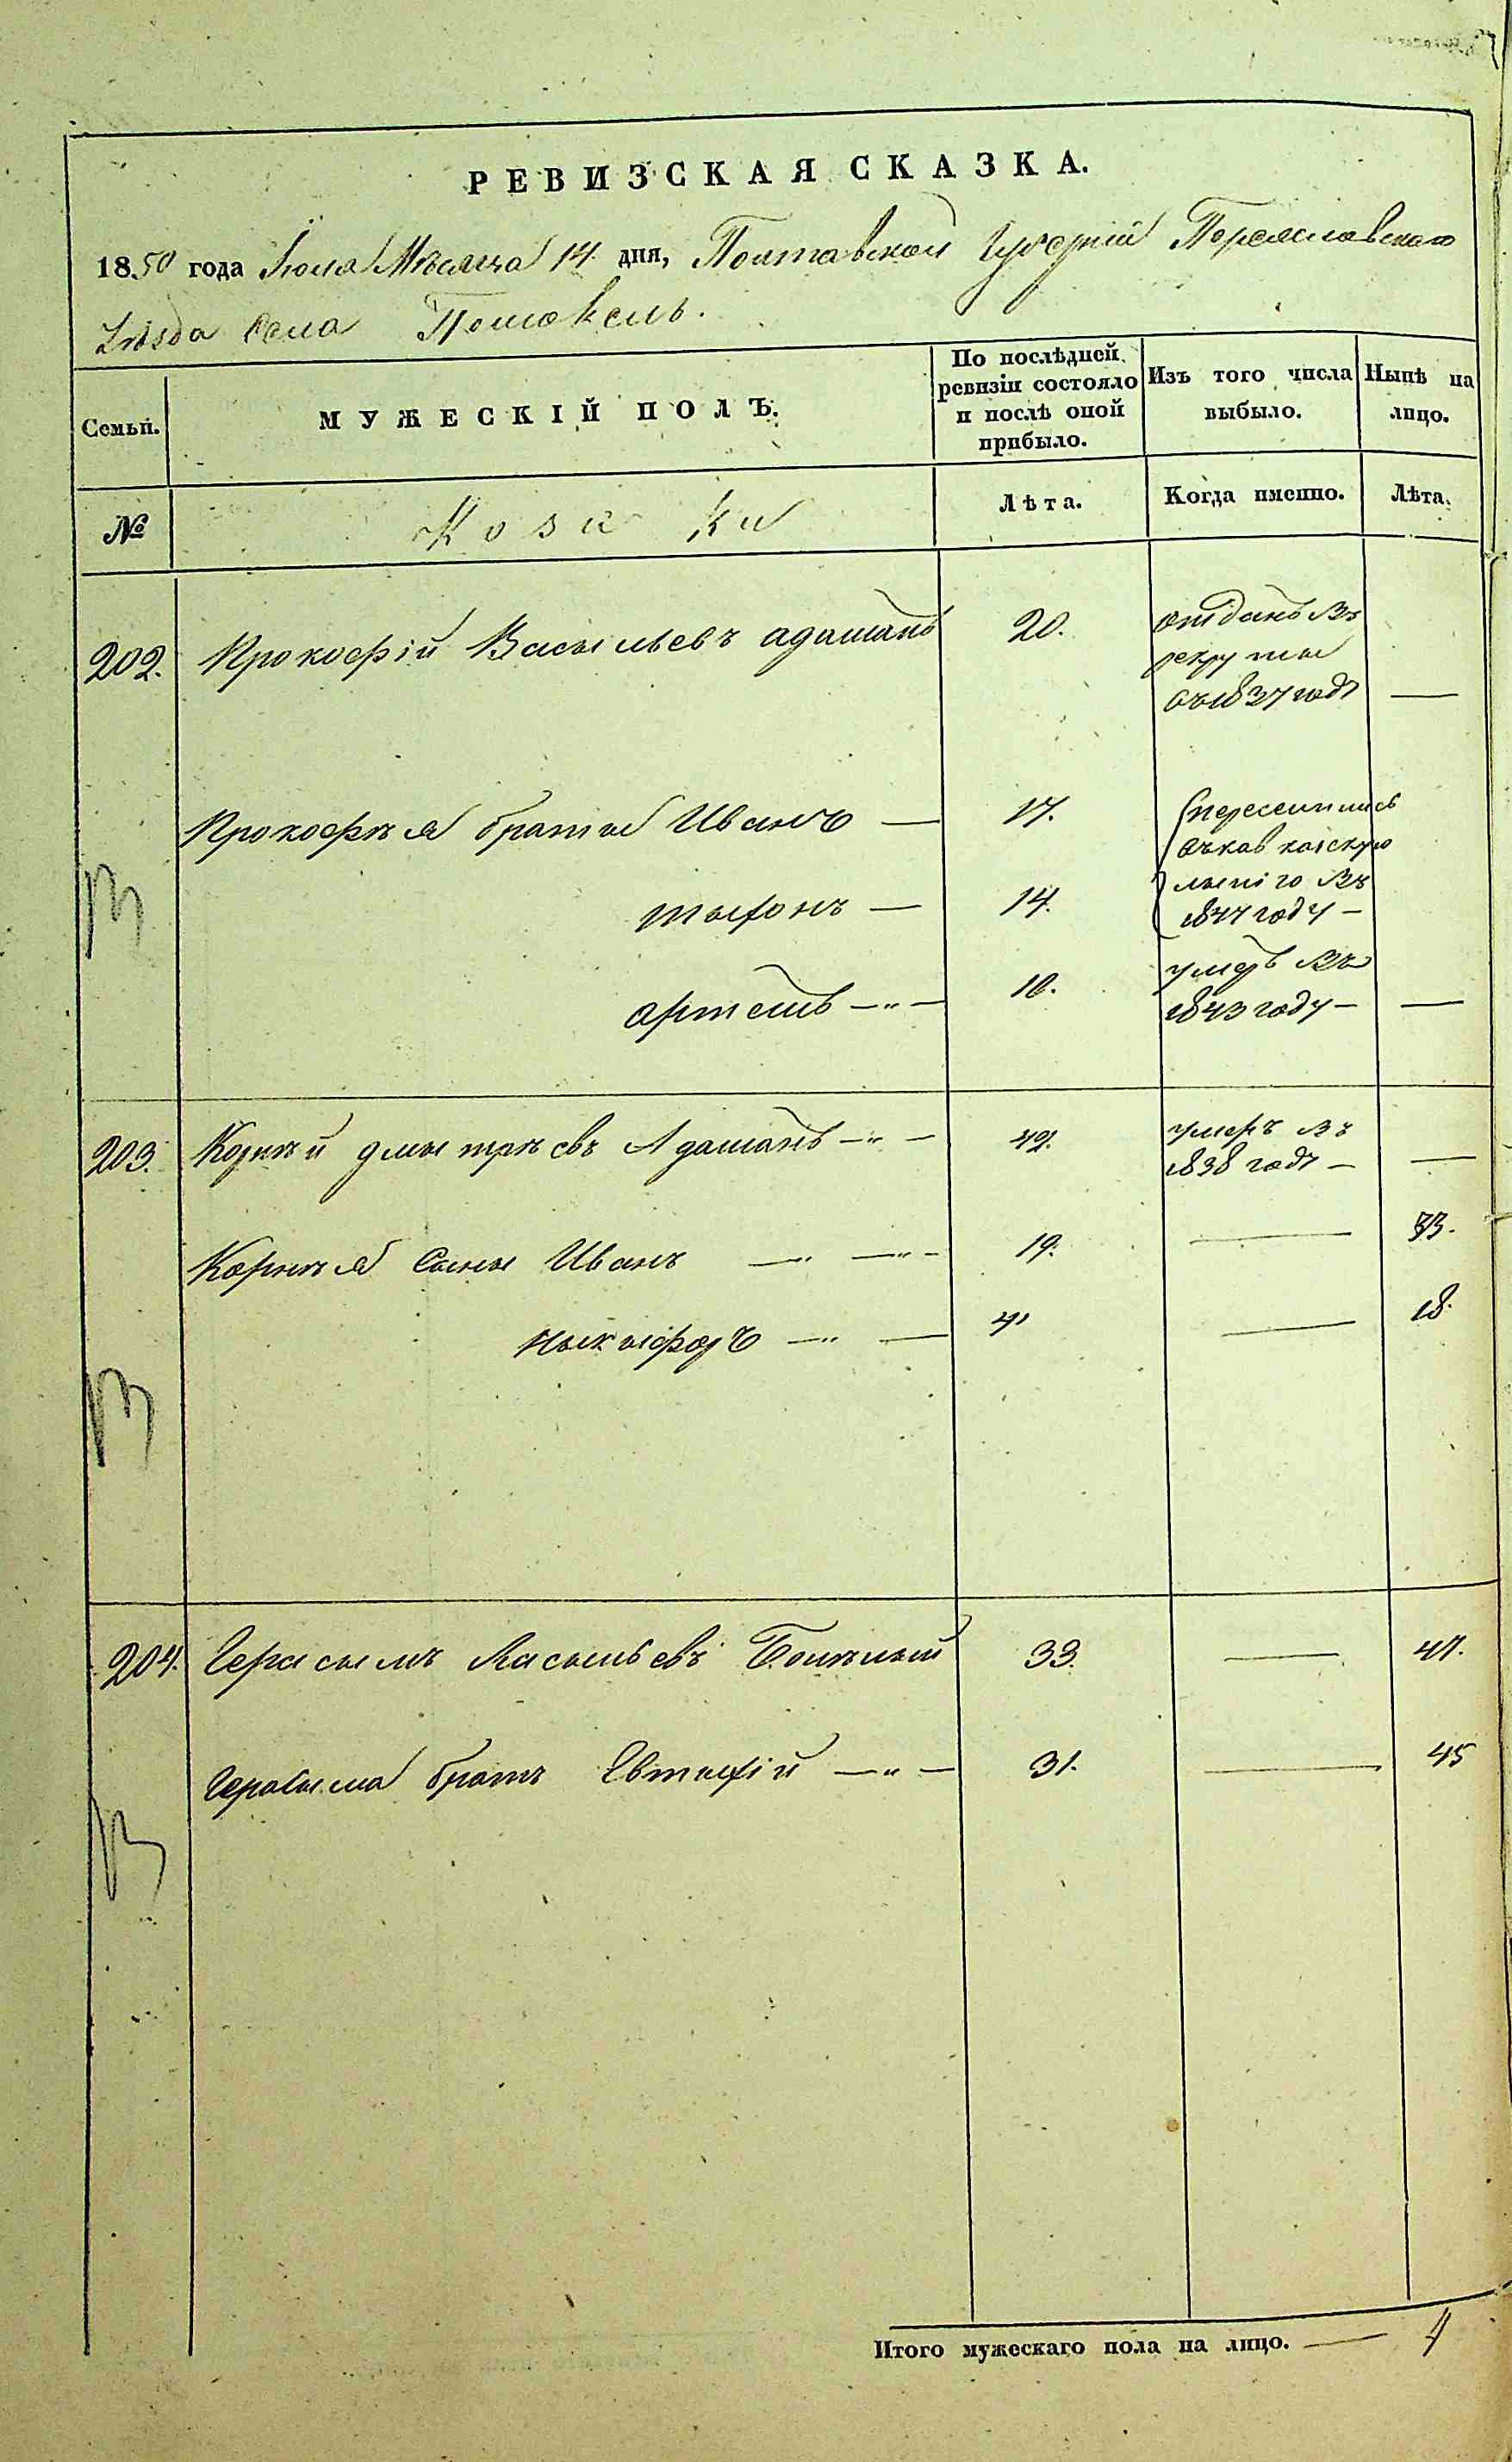 РЕВИЗСКАЯ СКАЗКА.
1850 года Іюля Мѣсяца 14 дня, Полтавской Губерніи Переяславскаго
Уѣзда Села Помоклъ.
Семьи.
МУЖЕСКІЙ ПОЛЪ.
По послѣдней ревизіи состояло и послѣ оной прибыло.
Изъ того числа выбыло.
Нынѣ на лицо.
№
Козаки
Лѣта.
Когда именно.
Лѣта.
202. Прокофій Васыльевъ Адаманъ 20. отданъ въ
рекруты
въ 1837 годѣ —
Прокофѣя браты Иванъ — 17. переселились
въ кавказскую
линію въ
1844 году —
тыхонъ — 14.
артемъ — 10. умеръ въ
1843 году — —
203. Корнѣй дмытрѣевъ Адаманъ — 42. умеръ въ
1838 годѣ — —
Корнѣя Сыны Иванъ — 19. — 33.
Ныкыфоръ — 4 — 18.
204. Герасымъ Васыльевъ 33. — 47.
Герасыма братъ Евтыхій — 31. — 45
Итого мужескаго пола на лицо. — 4